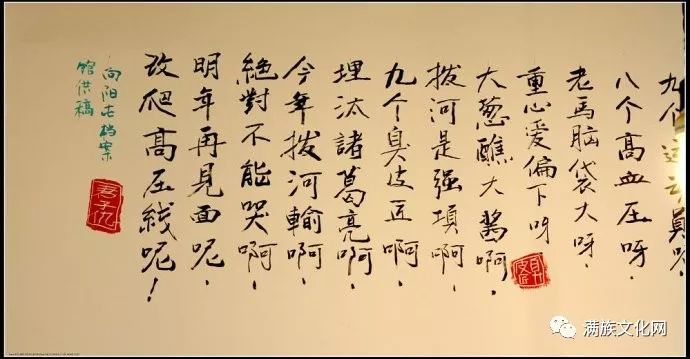 九个
八个高血压呀.
老馬脑袋大呀.
重心爱偏下呀
大葱醮大醬啊.
拨河是强項啊.
九个臭皮匠啊.
埋汰諸葛亮啊.
今年拨河輸啊.
絕對不能哭啊.
明年再見面呢.
改爬高压綫呢!
向阳屯档案
馆供稿
满族文化网